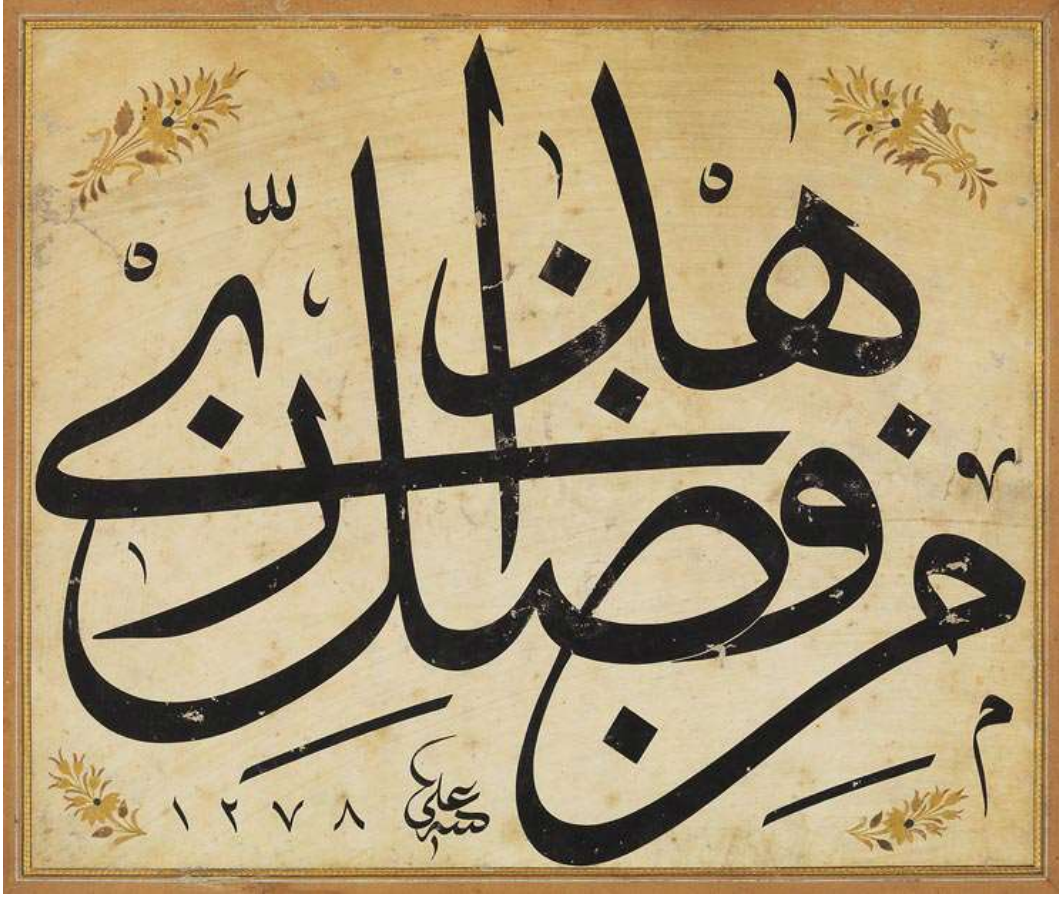 هذا من فضل ربي
علي
١٢٧٨